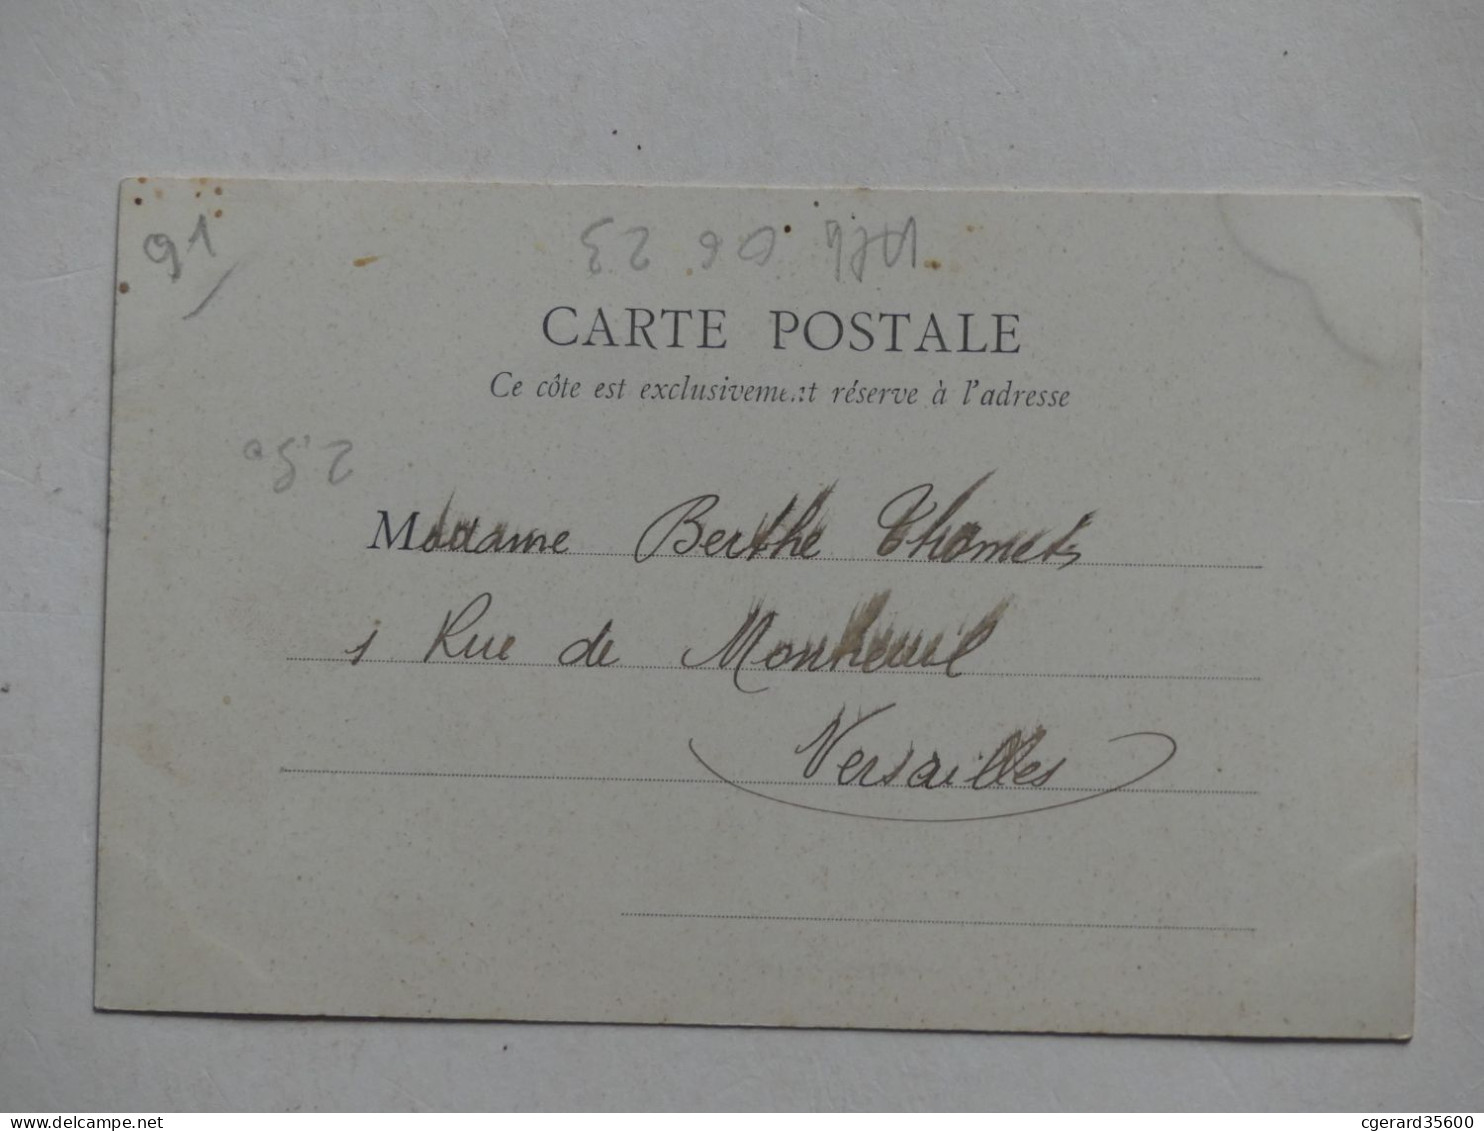 91
CARTE POSTALE
Ce côte est exclusivement réserve à l'adresse
2.50
Madame Berthe Thomets
1 Rue de Montreuil
Versailles
www.delcampe.net
cgerard35600